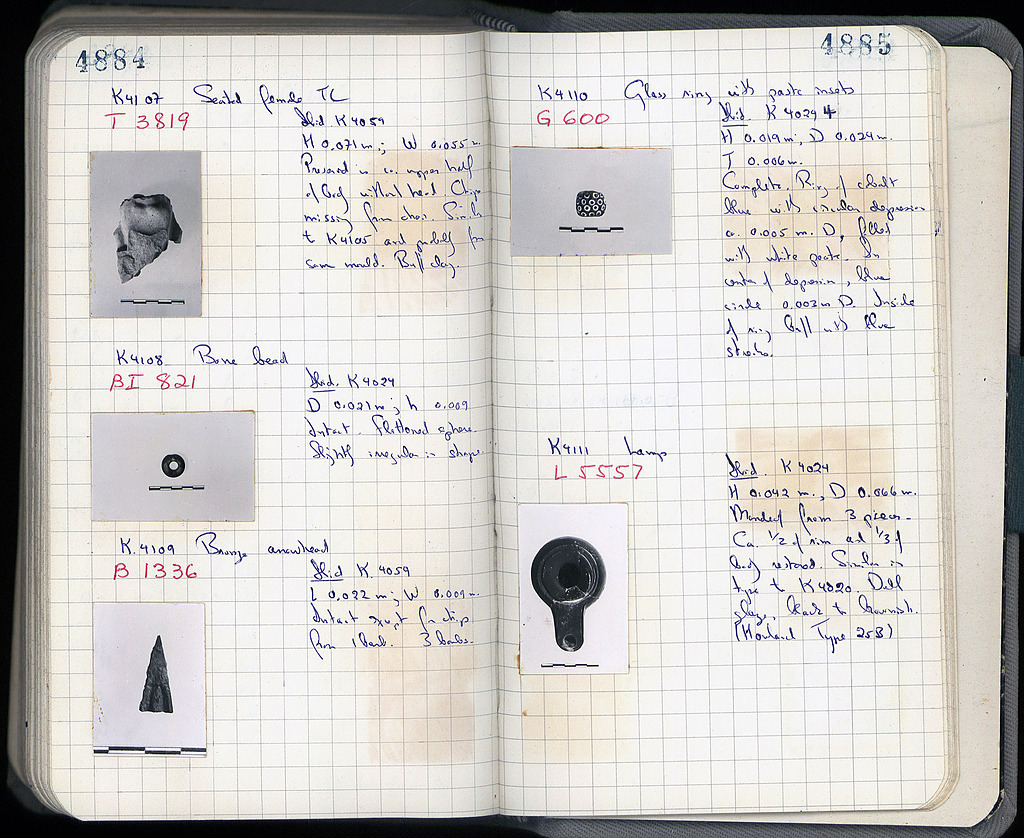 4884
K4107 Seated female TC
T 3819
Ibid. K 4059
H 0.071 m.; W 0.055 m.
Preserved is ca. upper half
of body without head. Chips
missing from chair. Similar
to K4105 and probably from
same mould. Buff clay.
K4108 Bone bead
BI 821
Ibid. K 4024
D 0.021 m; h 0.009
Intact. Flattened sphere.
Slightly irregular in shape.
K.4109 Bronze arrowhead
B 1336
Ibid K. 4059
L 0.022 m; W 0.009 m.
Intact except for chip
from 1 barb. 3 barbs.
4885
K4110 Glass ring with paste insets
G 600
Ibid. K 4024
H 0.019 m; D 0.024 m.
T 0.006 m.
Complete. Ring of cobalt
blue with circular depressions
ca. 0.005 m. D, filled
with white paste. In
center of depression, blue
circle 0.003 m D. Inside
of ring buff with blue
streaks.
K4111 Lamp
L 5557
Ibid. K 4024
H 0.042 m., D 0.066 m.
Mended from 3 pieces.
Ca. 1/2 of rim and 1/3 of
body restored. Similar in
type to K4020. Dull
glaze, black to brownish.
(Howland Type 25B)